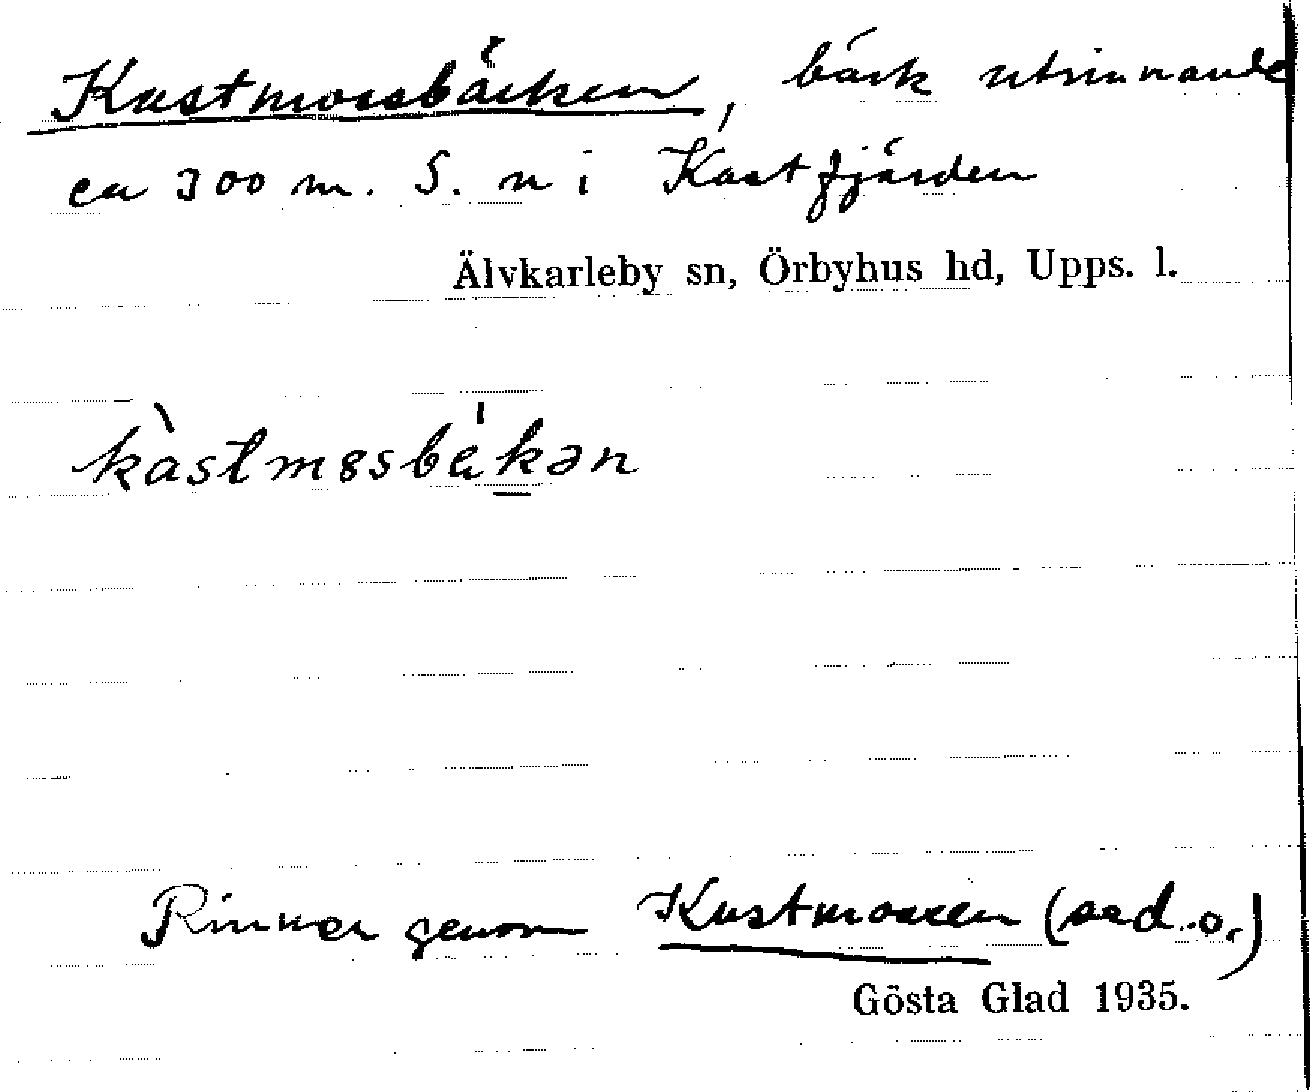 Kastmossbäcken, bäck utrinnande
ca 300 m. S. n i Kastfjärden
Älvkarleby sn, Örbyhus hd, Upps. l.
kàstm8sbä́kən
Rinner genom Kastmossen (se d.o.)
Gösta Glad 1935.